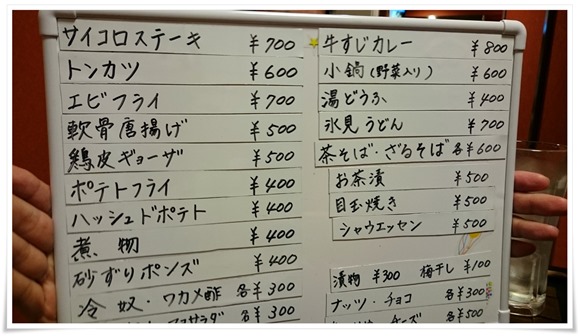 サイコロステーキ ¥700
トンカツ ¥600
エビフライ ¥700
軟骨唐揚げ ¥500
鶏皮ギョーザ ¥500
ポテトフライ ¥400
ハッシュドポテト ¥400
煮物 ¥400
砂ずりポンズ ¥400
冷奴・ワカメ酢 各¥300
サラダ ¥300
牛すじカレー ¥800
小鍋(野菜入り) ¥600
湯どうふ ¥400
氷見うどん ¥700
茶そば・ざるそば 各¥600
お茶漬 ¥500
目玉焼き ¥500
シャウエッセン ¥500
漬物 ¥300 梅干し ¥100
ナッツ・チョコ 各¥300
チーズ 各¥500